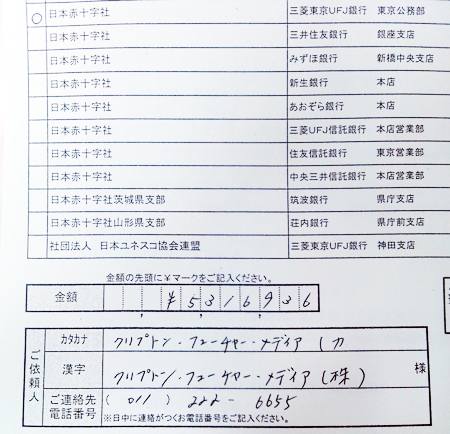 ○ 日本赤十字社 三菱東京UFJ銀行 東京公務部
日本赤十字社 三井住友銀行 銀座支店
日本赤十字社 みずほ銀行 新橋中央支店
日本赤十字社 新生銀行 本店
日本赤十字社 あおぞら銀行 本店
日本赤十字社 三菱UFJ信託銀行 本店営業部
日本赤十字社 住友信託銀行 東京営業部
日本赤十字社 中央三井信託銀行 本店営業部
日本赤十字社茨城県支部 筑波銀行 県庁支店
日本赤十字社山形県支部 荘内銀行 県庁前支店
社団法人 日本ユネスコ協会連盟 三菱東京UFJ銀行 神田支店
金額の先頭に¥マークをご記入ください。
金額 ¥5,316,936
ご依頼人
カタカナ クリプトン・フューチャー・メディア(カ
漢字 クリプトン・フューチャー・メディア(株) 様
ご連絡先 (011) 222-6655
電話番号 ※日中に連絡がつくお電話番号をご記入ください。